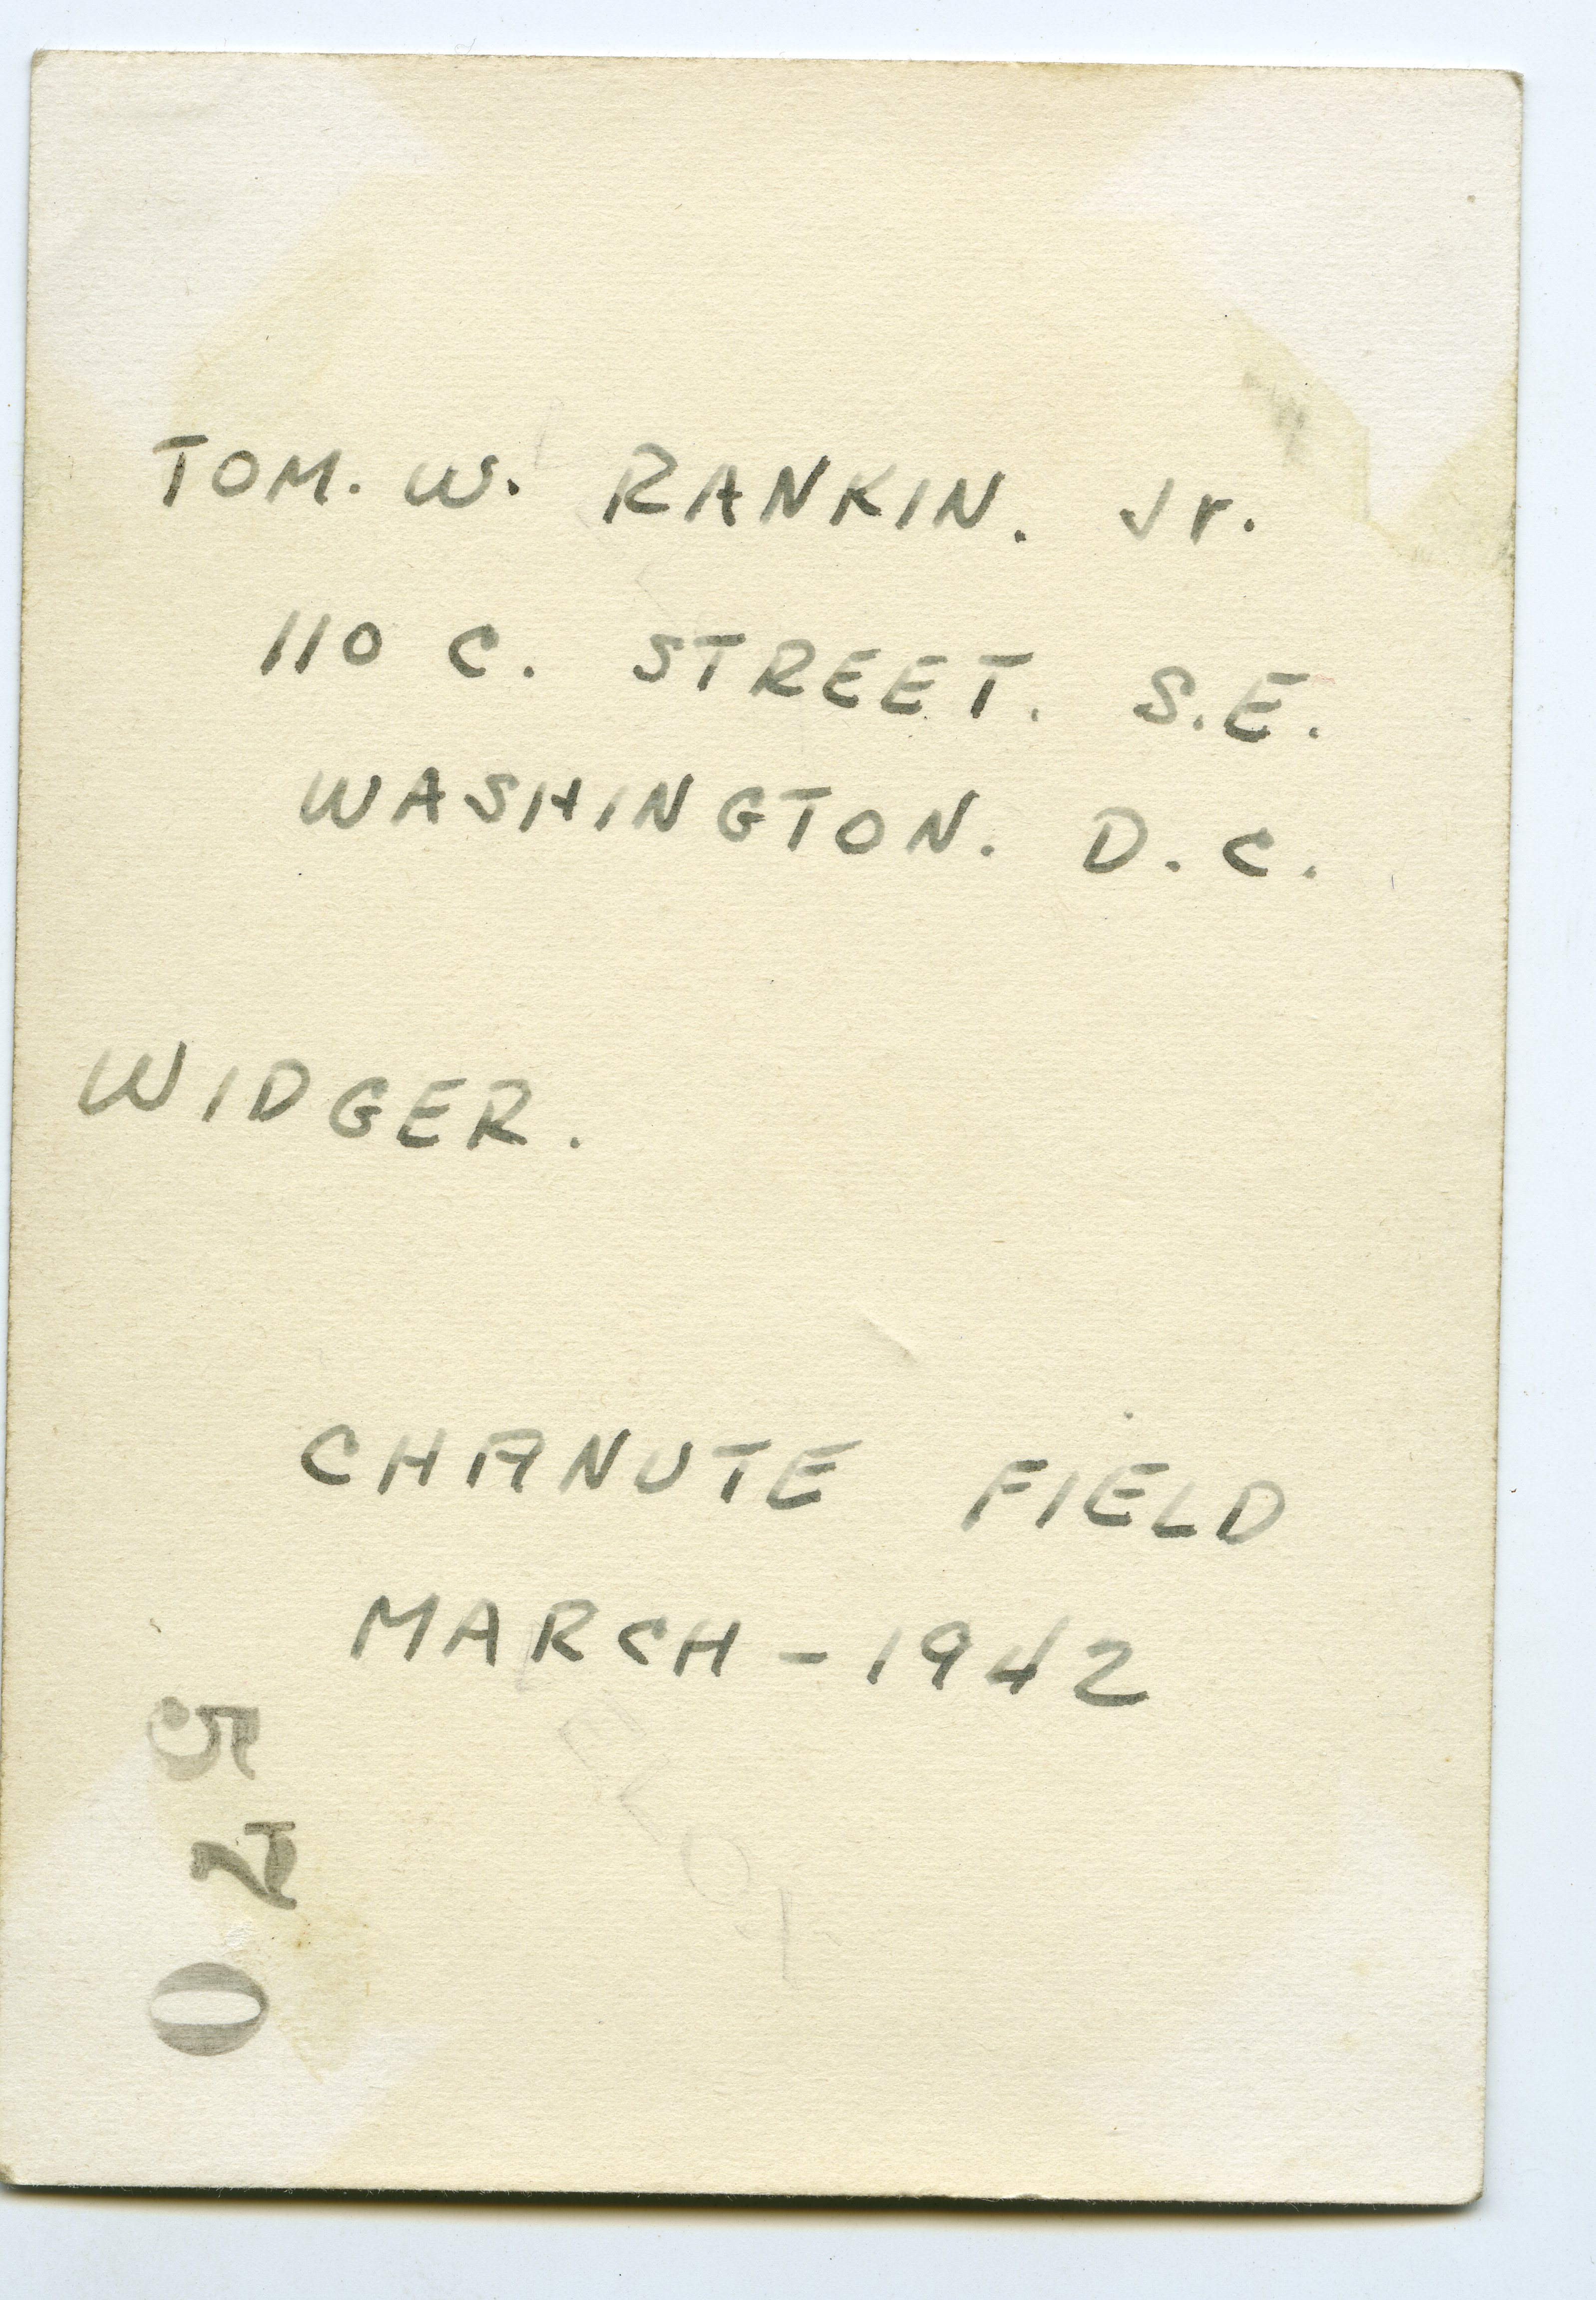 TOM. W. RANKIN. Jr.
110 C. STREET. S.E.
WASHINGTON. D.C.
WIDGER.
CHANUTE FIELD
MARCH - 1942